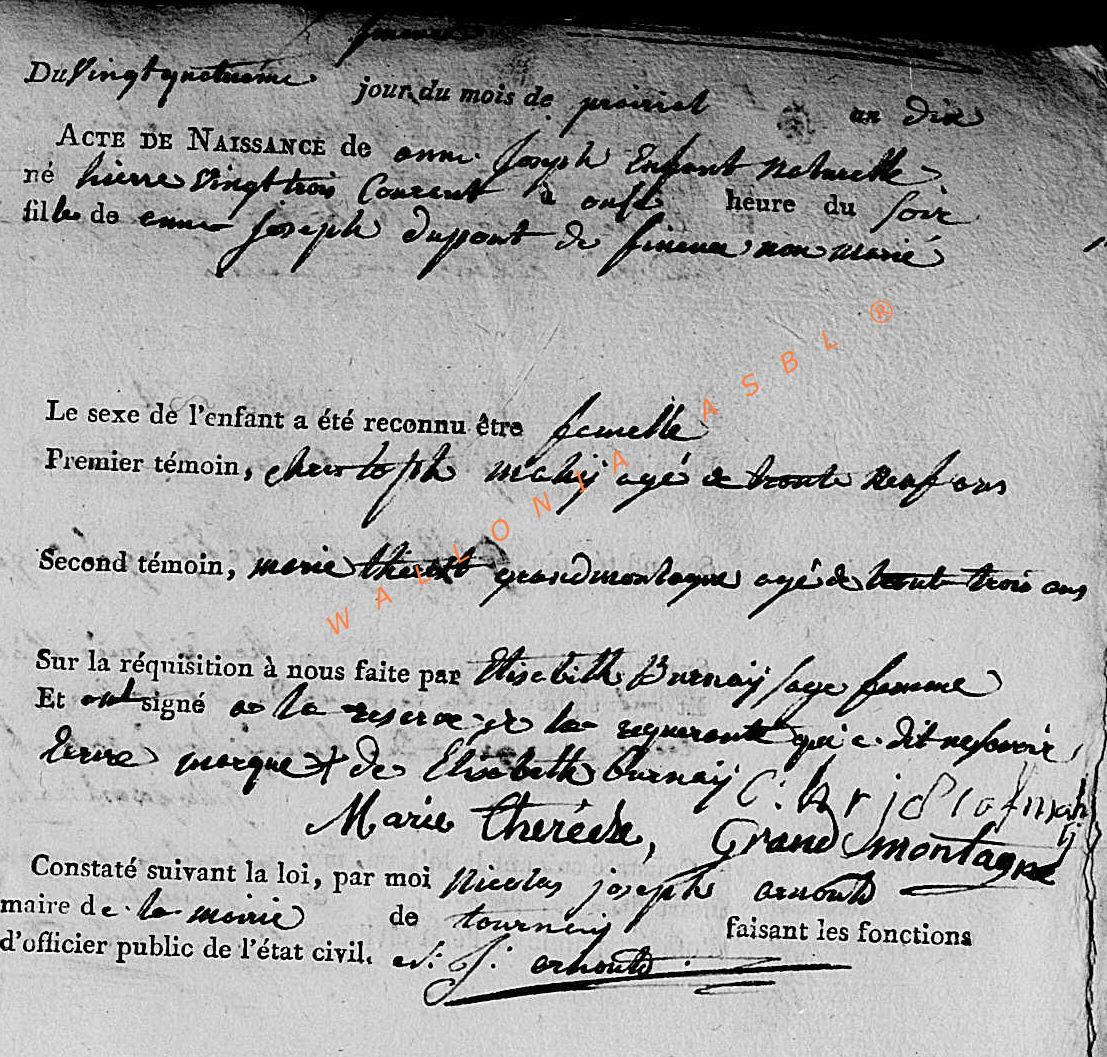 Du Vingt quatrieme jour du mois de prairial an dix
ACTE DE NAISSANCE de anne Joseph Enfant naturelle
né hierre Vingt trois Courent à onse heure du soir
fille de anne joseph dupont de finevaux non marié
Le sexe de l'enfant a été reconnu être femelle
Premier témoin, christoph mahij agé de trente neuf ans
Second témoin, marie therese grandmontagne agé de trente trois ans
Sur la réquisition à nous faite par Elisabeth Burnaij sage femme
Et ont signé a la reserve de la requerante qui a dit ne savoir
Ecrire marque + de Elisabeth burnaij
Marie therése, Grand montagne
Constaté suivant la loi, par moi Nicolas joseph arnould
maire de la mairie de faisant les fonctions
d'officier public de l'état civil. N: J: arnould
WALLONIA ASBL ®